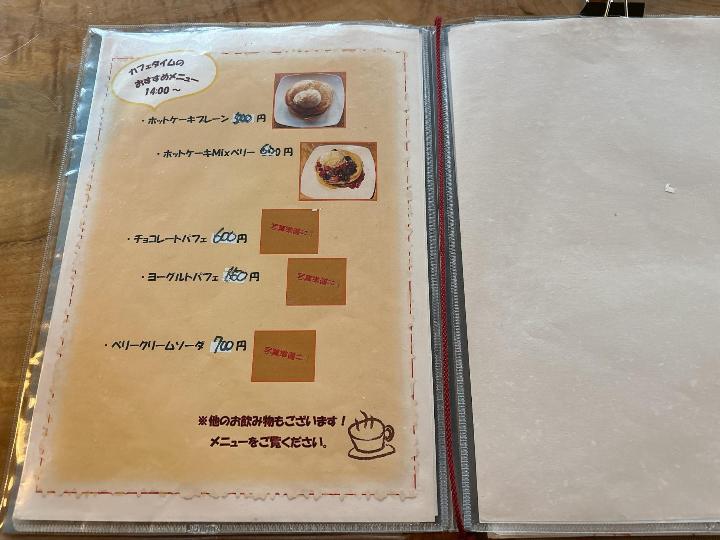 カフェタイムの
おすすめメニュー
14:00～
・ホットケーキプレーン 500 円
・ホットケーキMixベリー 600 円
・チョコレートパフェ 600 円
写真準備中！
・ヨーグルトパフェ 円
写真準備中！
・ベリークリームソーダ 700 円
写真準備中
※他のお飲み物もございます！
メニューをご覧ください。